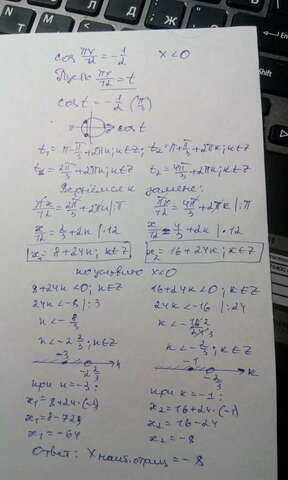 cos πx/12 = -1/2 x<0
Пусть πx/12 = t
cos t = -1/2 (π/3)
cos t
t₁ = π - π/3 + 2πn; n∈Z; t₂ = π + π/3 + 2πk; k∈Z
t₁ = 2π/3 + 2πn; n∈Z t₂ = 4π/3 + 2πk; k∈Z
Вернёмся к замене:
πx/12 = 2π/3 + 2πn |:π πx/12 = 4π/3 + 2πk |:π
x/12 = 2/3 + 2n |·12 x/12 = 4/3 + 2k |·12
x₁ = 8+24n; n∈Z x₂ = 16+24k; k∈Z
по условию x<0
8+24n<0; n∈Z 16+24k<0; k∈Z
24n<-8 |:3 24k<-16 |:24
n<-8/3 k<-16/24
n<-2 2/3; n∈Z k<-2/3; k∈Z
-3 -2 2/3 n -1 -2/3 k
при n=-3: при k=-1:
x₁=8+24·(-3) x₂=16+24·(-1)
x₁=8-72 x₂=16-24
x₁=-64 x₂=-8
Ответ: x наиб. отриц = -8